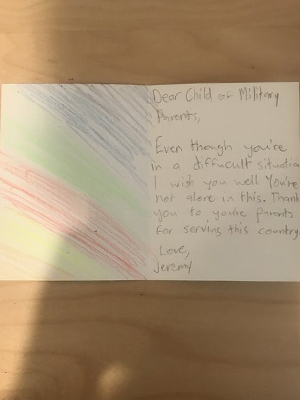 Dear Child of Military
Parents,
Even though you're
in a diffucult situation
I wish you well You're
not alone in this. Thank
you to you're parents
for serving this country
Love,
Jeremy